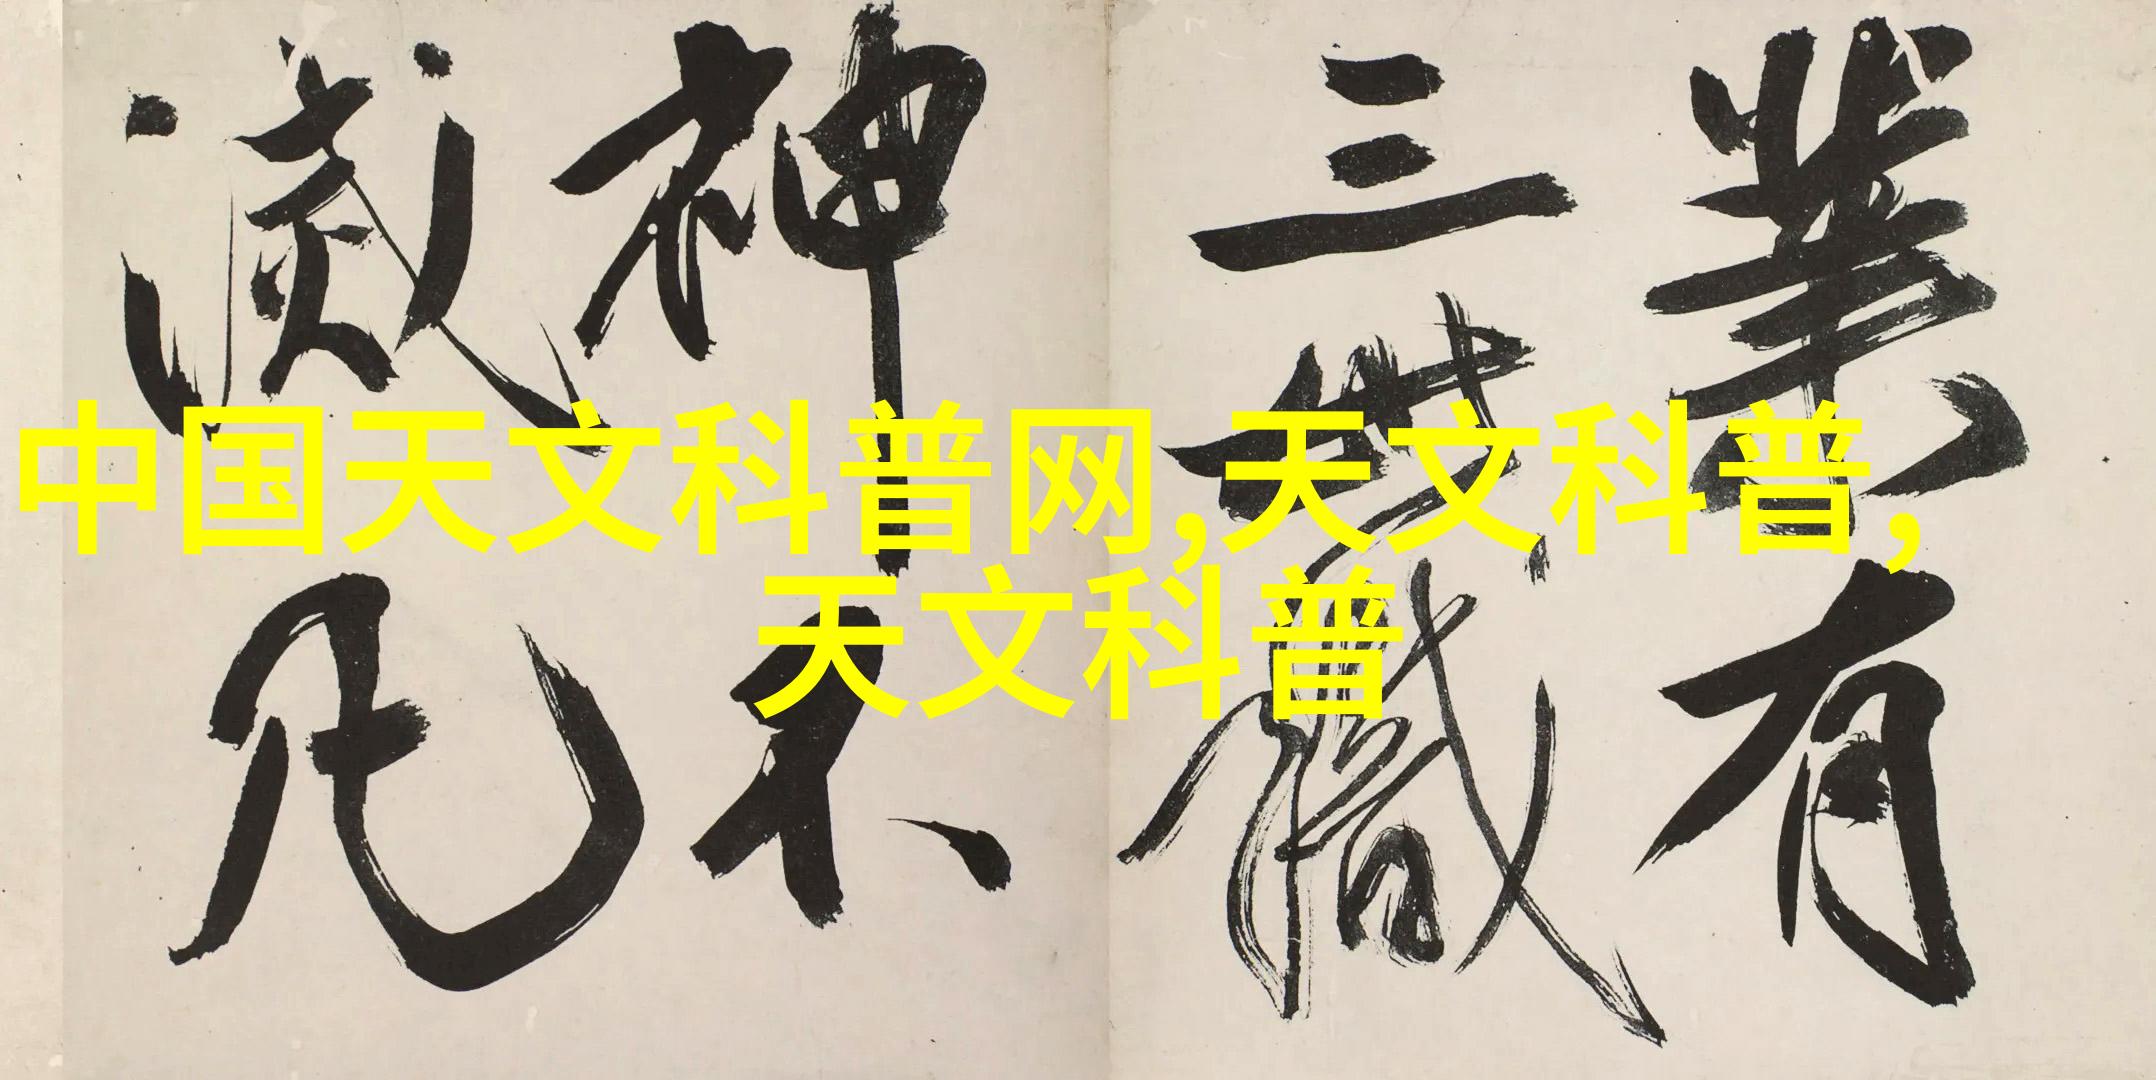 中国天文科普网,天文科普,
天文科普
業有
三世識
神不
滅凡